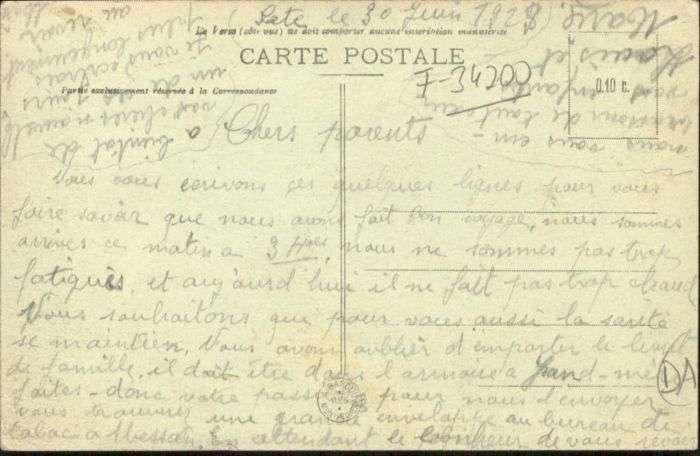 Sete le 30 Juin 1928
Le Verso (côté vue) ne doit comporter aucune inscription manuscrite
CARTE POSTALE
F-34200
0.10 c.
Partie exclusivement réservée à la Correspondance
Chers parents
Nous vous écrivons ces quelques lignes pour vous
faire savoir que nous avons fait bon voyage, nous sommes
arrivés ce matin a 3 hres, nous ne sommes pas trop
fatigués, et aujourd hui il ne fait pas trop chaud
Nous souhaitons que pour vous aussi la santé
se maintien. Nous avons oublier d'emporter le livret
de famille, il doit être dans l'armoire a grand-mè
faites-donc votre possible pour nous l'envoyer
vous trouverez une grande enveloppe au bureau de
tabac a En attendant le bonheur de vous revoir
DA
bientot de
vos chères nouvelles
un de ces jours
je vous écrirais
plus longuement
au revoir
nous vous em-
brassons de tout coeur
vos enfants
Louis et
Marie